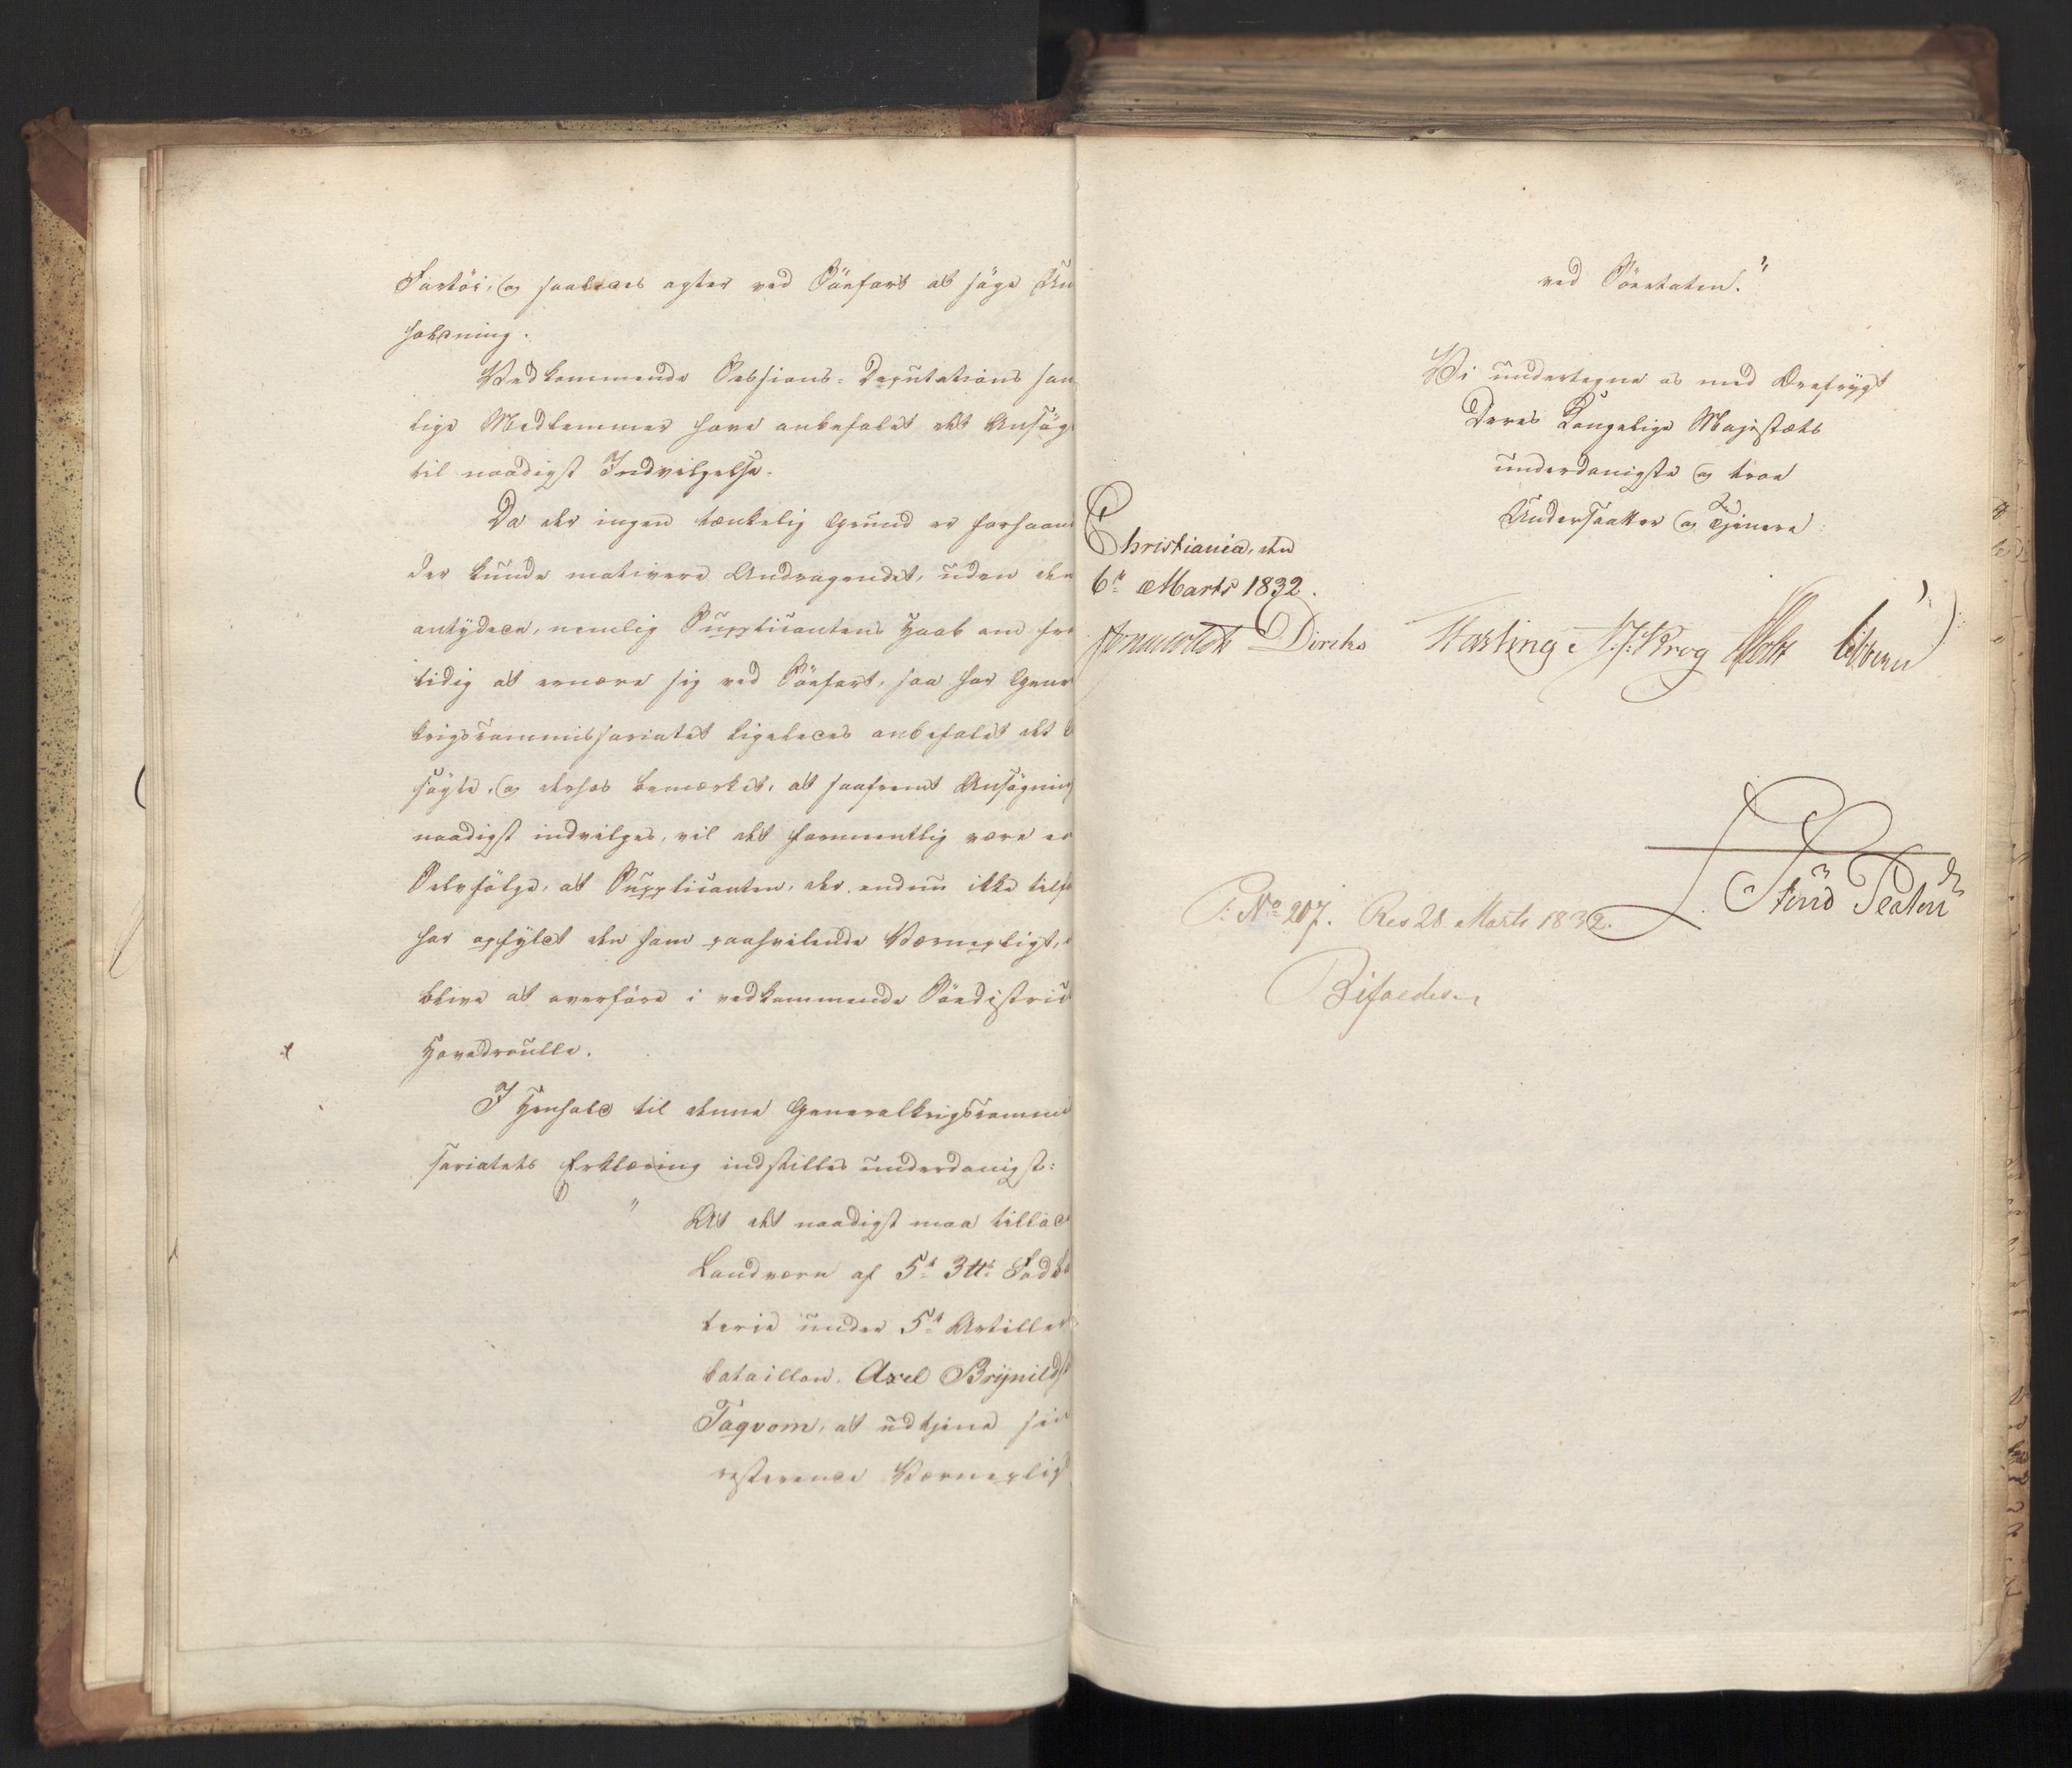 Fartöi, og saaledes agter ved Söefart at søge Un
holdning.
Vedkommende Sessions-Deputations sam
lige Medlemmer have anbefalet det Ansøg
til naadigst Indvilgelse.
Da der ingen tænkelig Grund er forhaand
der kunde motivere Andragendet, uden den
antydede, nemlig Supplicantens Haab om frem
tidig at ernære sig ved Söefart, saa har Gener
krigscommissariatet ligeledes anbefalet det
søgte, og derhos bemærket, at saafremt Ansøgning
naadigst indvilges, vil det formeentlig være en
Selvfölge, at Supplicanten, der endnu ikke
har opfyldt den ham paahvilende Værnepligt,
blive at overföre i vedkommende Söedistrict
Hovedroulle.
I Henhold til denne Generalkrigscommi
sariatets Erklæring indstilles underdanigst:
" At det naadigst maa tillad
Landværn af 5te 3 ℔. Fodb
terie under 5te Artillerie
bataillon, Axel Brynilds
Taqvom, at udtjene sin
resterende Værneplig
ved Söeetaten."
Vi undertegne os med Ærefrygt
Deres Kongelige Majestæts
underdanigste og troe
Undersaatter og Tjenere
Christiania, den
6te Marts 1832.
Sommerfeldt Diriks Fasting N. J. Krog Holst Sibbern
Fred Platen
P: No 207. Res 28 Marts 1832.
Bifaldes